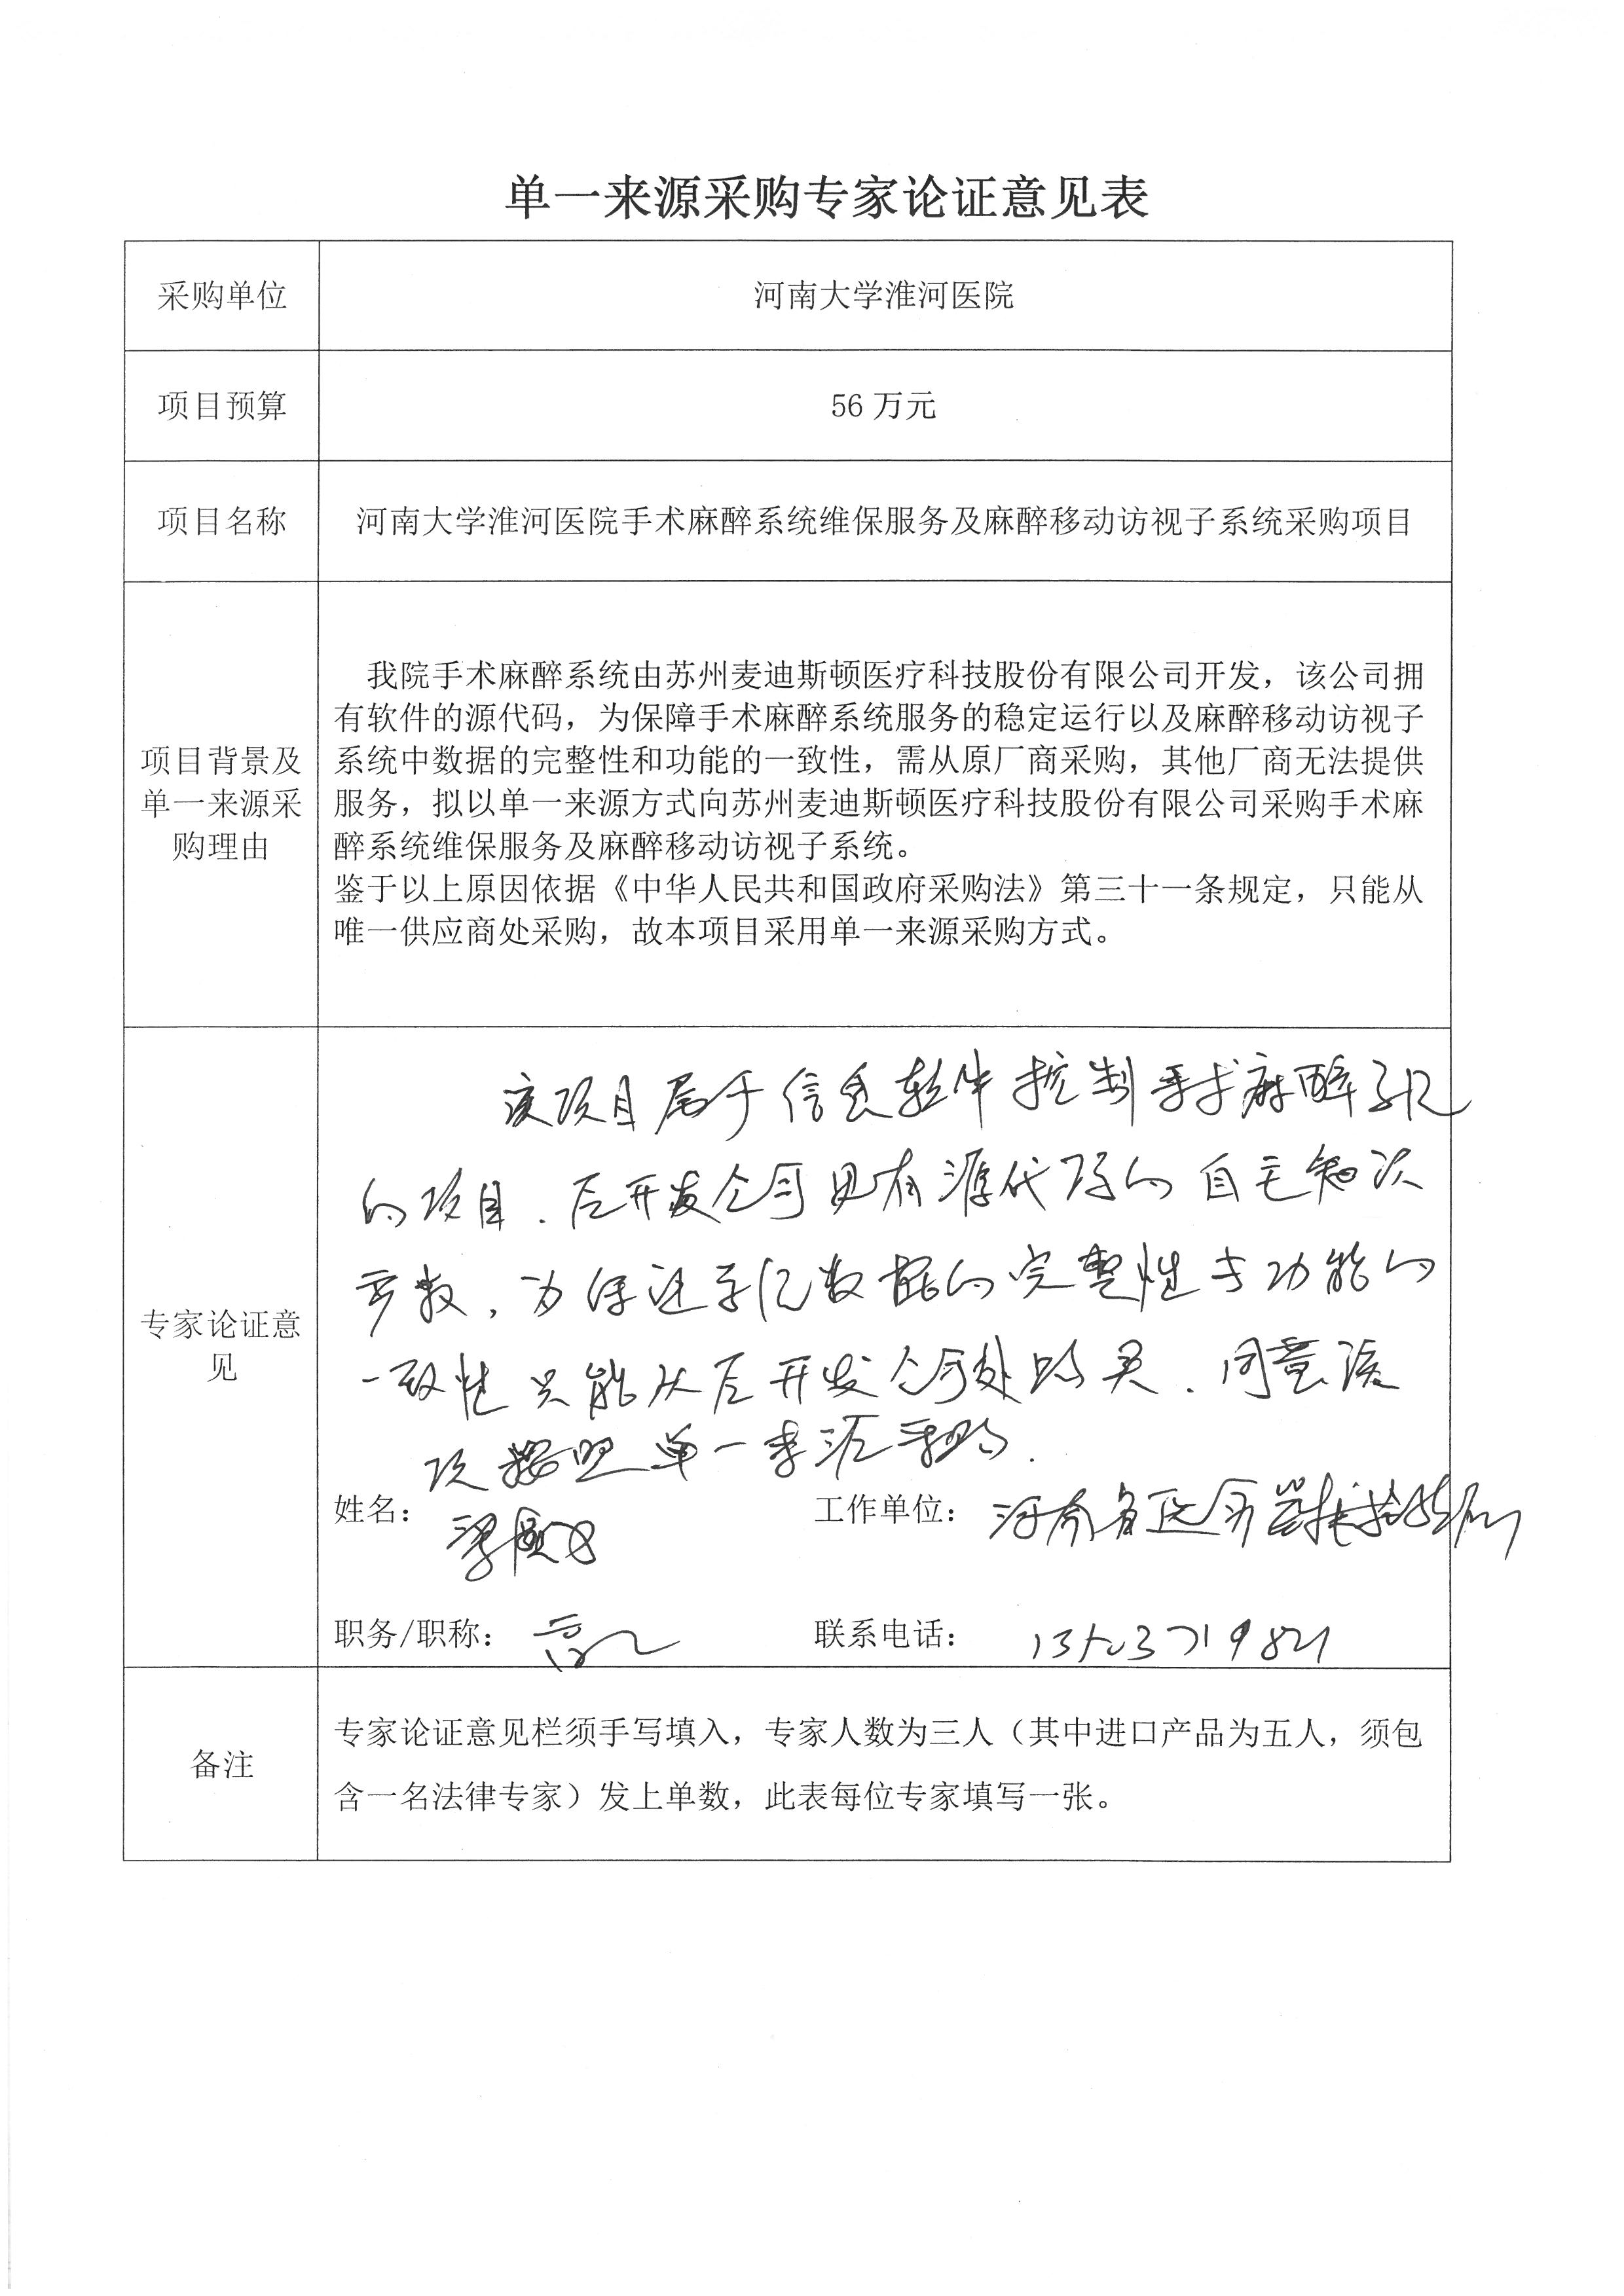 单一来源采购专家论证意见表
采购单位
河南大学淮河医院
项目预算
56 万元
项目名称
河南大学淮河医院手术麻醉系统维保服务及麻醉移动访视子系统采购项目
项目背景及
单一来源采
购理由
我院手术麻醉系统由苏州麦迪斯顿医疗科技股份有限公司开发，该公司拥
有软件的源代码，为保障手术麻醉系统服务的稳定运行以及麻醉移动访视子
系统中数据的完整性和功能的一致性，需从原厂商采购，其他厂商无法提供
服务，拟以单一来源方式向苏州麦迪斯顿医疗科技股份有限公司采购手术麻
醉系统维保服务及麻醉移动访视子系统。
鉴于以上原因依据《中华人民共和国政府采购法》第三十一条规定，只能从
唯一供应商处采购，故本项目采用单一来源采购方式。
专家论证意
见
该项目属于信息软件控制手术麻醉系统
的项目．原开发公司具有源代码的自主知识
产权，为保证系统数据的完整性与功能的
一致性只能从原开发公司处购买．同意该
项按照单一来源采购．
姓名：
工作单位：河南省医疗器械检验所
职务/职称：高工
联系电话：
备注
专家论证意见栏须手写填入，专家人数为三人（其中进口产品为五人，须包
含一名法律专家）发上单数，此表每位专家填写一张。